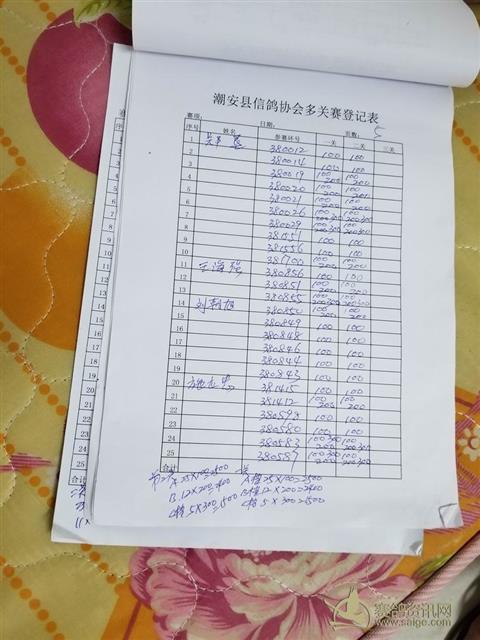 潮安县信鸽协会多关赛登记表
赛项： 日期： 页数： 5
序号 姓名 参赛环号 一关 二关 三关
1 380012 100 100
2 380014 100 100
3 380019 100 200 100 200
4 380020 100 200 100 200
5 380021 100 200 100 200
6 380026 100 200 300 100 200 300
7 380029 100 200 300 100 200 300
8 381551 100 100
9 381556 100 100
10 381700 100 200 100 200
11 王海强 380856 100 100
12 380851 100 200 100 200
13 380855 100 200 300 100 200 300
14 刘朝旭 380850 100 200 100 200
15 380849 100 100
16 380848 100 100
17 380846 100 100
18 380844 100 100
19 380843 100 100
20 381415 100 200 100 200
21 381412 100 200 100 200
22 380598 100 100
23 380580 100 100
24 380583 100 200 300 100 200 300
25 380587 100 200 300 100 200 300
合计
A 25×100=2500 A档 25×100=2500
B 12×200=2400 B档 12×200=2400
C档 5×300=1500 C档 5×300=1500
赛鸽资讯网
www.saige.com